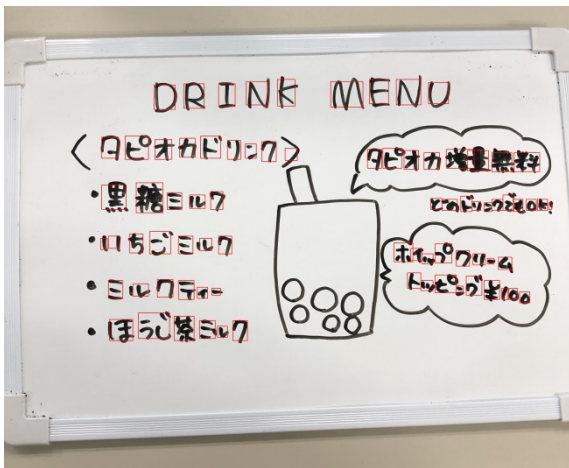 DRINK MENU
〈タピオカドリンク〉
・黒糖ミルク
・いちごミルク
・ミルクティー
・ほうじ茶ミルク
タピオカ増量無料
どのドリンクでもOK!
ホイップクリーム
トッピング ¥100